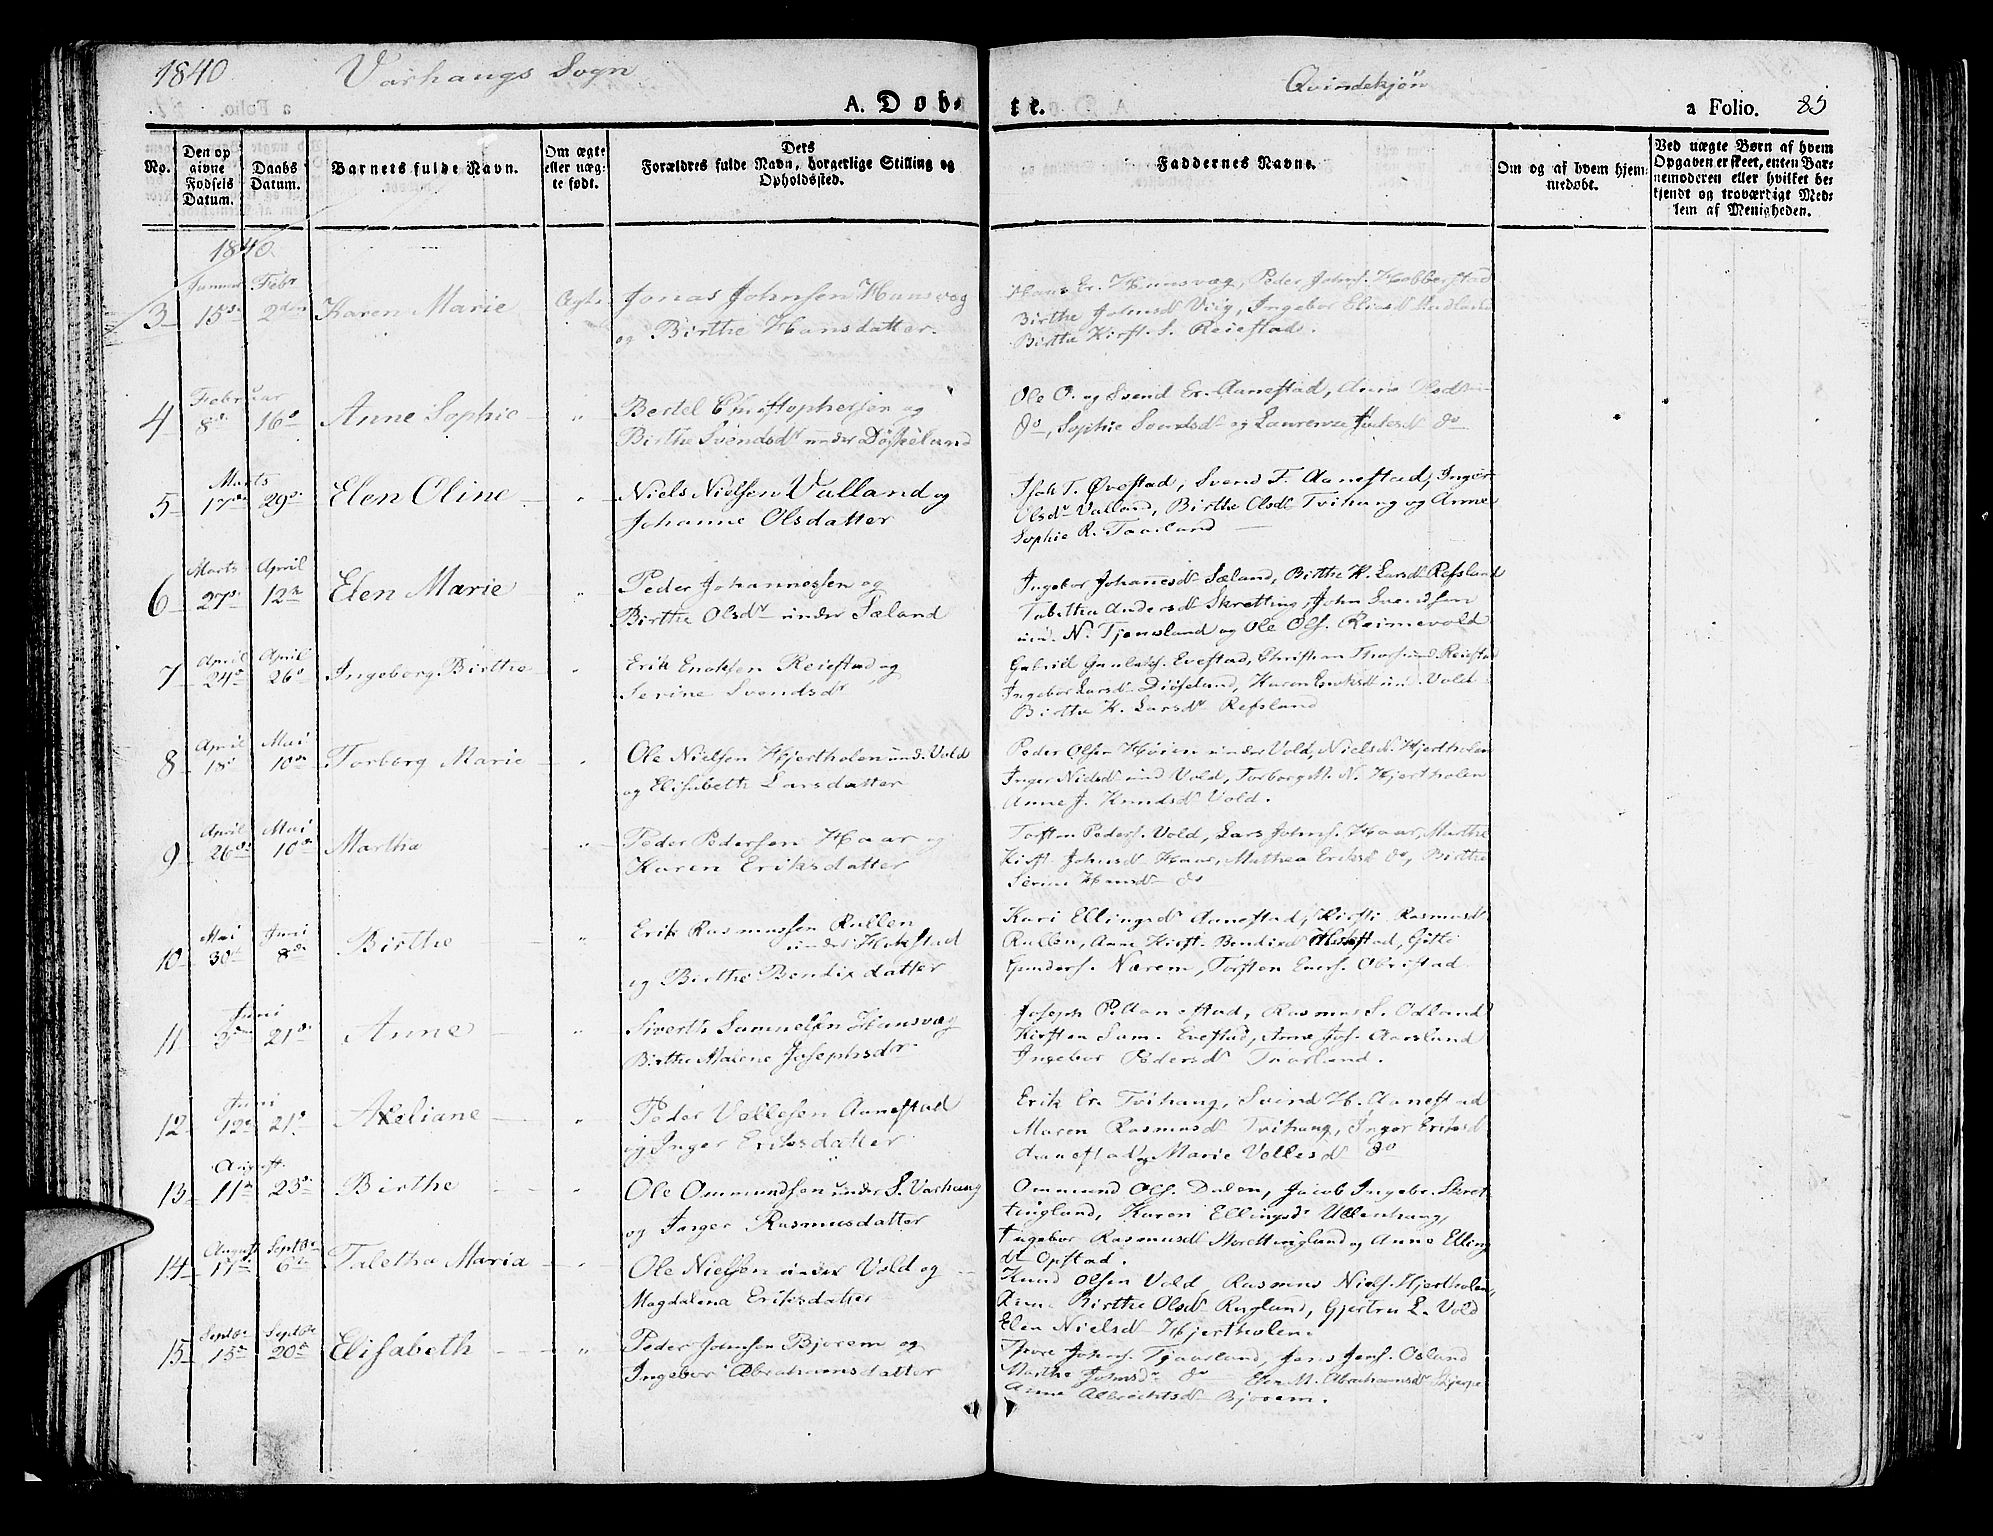 1840 Varhaugs Sogn Qvindekjøn
A. Døbte. a Folio. 85
No.
Den opgivne Fødsels Datum.
Daabs Datum.
Barnets fulde Navn.
Om ægte eller uægte født.
Dets Forældres fulde Navn, borgerlige Stilling og Opholdssted.
Faddernes Navne.
Om og af hvem hjemmedøbt.
Ved uægte Børn af hvem Opgaven er skeet, enten Barnemoderen eller hvilket bekjendt og troværdigt Medlem af Menigheden.
1840.
3 Januar 15de Febr 2den Karen Marie Ægte Jonas Johnsen Hansvæg
og Birthe Hansdatter.
Hans Er. Hansvæg, Peder Johns. Hobberstad
Birthe Johnsdr Viig, Ingebor Eliasdr
Birthe Kirst. S. Reiestad.
4 Februar 8de 16de Anne Sophie " Bertel Christophersen og
Birthe Svendsdr under Døseland
Ole O. og Svend Er. Aanestad, Anne Olsdr
do, Sophie Svendsdr og Laurenze do
5 Marts 17de 29de Elen Oline " Niels Nielsen Valland og
Johanne Olsdatter
T. Øvestad, Svend T. Aanestad, Inger
Olsdr Valland, Birthe Olsdr Tvihaug og Anne
Sophie R. Taarland
6 Marts 27de April 12te Elen Marie " Peder Johannessen og
Birthe Olsdr under Sæland
Ingebor Johannesdr Sæland, Birthe K. Larsdr Refsland
Tabitha Andersdr Skretting, John Svendsen
und. N. Tjemsland og Ole Ols. Reimevold
7 April 24de April 26de Ingeborg Birthe " Erik Enoksen Reiestad og
Serine Svendsdr
Gabriel Evestad, Christen Reiestad
Ingebor Larsdr Døseland, Karen Enoksdr und. Vold
Birthe K. Larsdr Refsland
8 April 18de Mai 10de Torborg Marie " Ole Nielsen Hjertholen und. Vold
og Elisabeth Larsdatter
Peder Olsen Høien under Vold, Niels N. Hjertholen
Inger Nielsdr und Vold, Torborg M. N. Hjertholen
Anne J. Knudsdr Vold.
9 April 26de Mai 10de Martha " Peder Pedersen Haar og
Karen Eriksdatter
Torsten Peders. Vold, Lars Johns. Haar, Marthe
Kirst. Johnsdr Haar, Mathea Eriksdr do, Birthe
Serine Hansdr do
10 Mai 30te Juni 8de Birthe " Erik Rasmussen Rullen
under Hokstad
og Birthe Bendixdatter
Kari Ellingsdr Aanestad, Kirsti Rasmusdr
Rullen, Anne Kirst. Bendixdr Hokstad, Gitle
Gunders. Nærem, Torsten Eners. Obrestad
11 Juni 21de Anne " Sivert Samuelsen Hansvæg
Birthe Malene Josephsdr
Joseph P. Aanestad, Rasmus S. Odland
Kirsten Sam. Evestad, Anne Jos. Aarsland
Ingebor Pedersdr Taarland.
12 Juni 12te 21de Axeliane " Peder Vellesen Aanestad
og Inger Eriksdatter
Erik Er. Tvihaug, Svend H. Aanestad
Maren Rasmusdr Tvihaug, Inger Eriksdr
Aanestad og Marie Vellesdr do
13 August 11te 23de Birthe " Ole Ommundsen under S. Varhaug
og Inger Rasmusdatter
Ommund Ols. Dalen, Jacob Ingebr. Skret-
tingland, Karen Ellingsdr Ullenhaug,
Ingebor Rasmusdr Skrettingland og Anne Elling
dr Opstad.
14 August 17de Septbr 6te Taletha Maria " Ole Nielsen under Vold og
Magdalena Eriksdatter
Knud Olsen Vold, Rasmus Niels. Hjertholen,
Anne Birthe Olsdr Rygland, Gjertru L. Vold
Elen Nielsdr Hjertholen.
15 Septbr 15de Septbr 20de Elisabeth " Peder Johnsen Bjorem og
Ingebor Abrahamsdatter
Thore Johns. Tjaarland, Jens Jens. Osland
Marthe Johnsdr do Elen M. Abrahamsdr
Anne Albrechtsdr Bjorem.